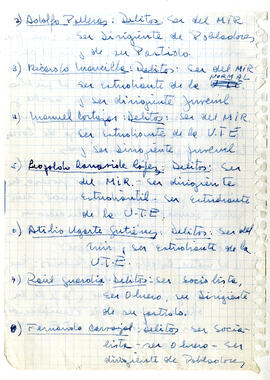 2) Adolfo Palleras: Delitos: Ser del MIR
Ser Dirigente de Pobladores
y de su Partido.
3) Ricardo Mancilla: Delitos: Ser del MIR
NORMAL
ser estudiante de la
y ser dirigente Juvenil
4) Manuel Cortez: Delitos: Ser del MIR
Ser Estudiante de la U.T.E
y Ser dirigente Juvenil
5) Leopoldo Benavide Lopez: Delitos: Ser
del MIR. - Ser dirigente
Estudiantil - Ser Estudiante
de la U.T.E
6) Atilio Ugarte Gutiérrez: Delitos: Ser del
mir, Ser estudiante de la
U.T.E.
7) Raúl Guardia Delitos: Ser Socialista,
Ser Obrero, Ser Dirigente
de su partido.
8) Fernando Carvajal: Delitos: Ser Socia-
lista - ser Obrero - Ser
dirigente de Pobladores,